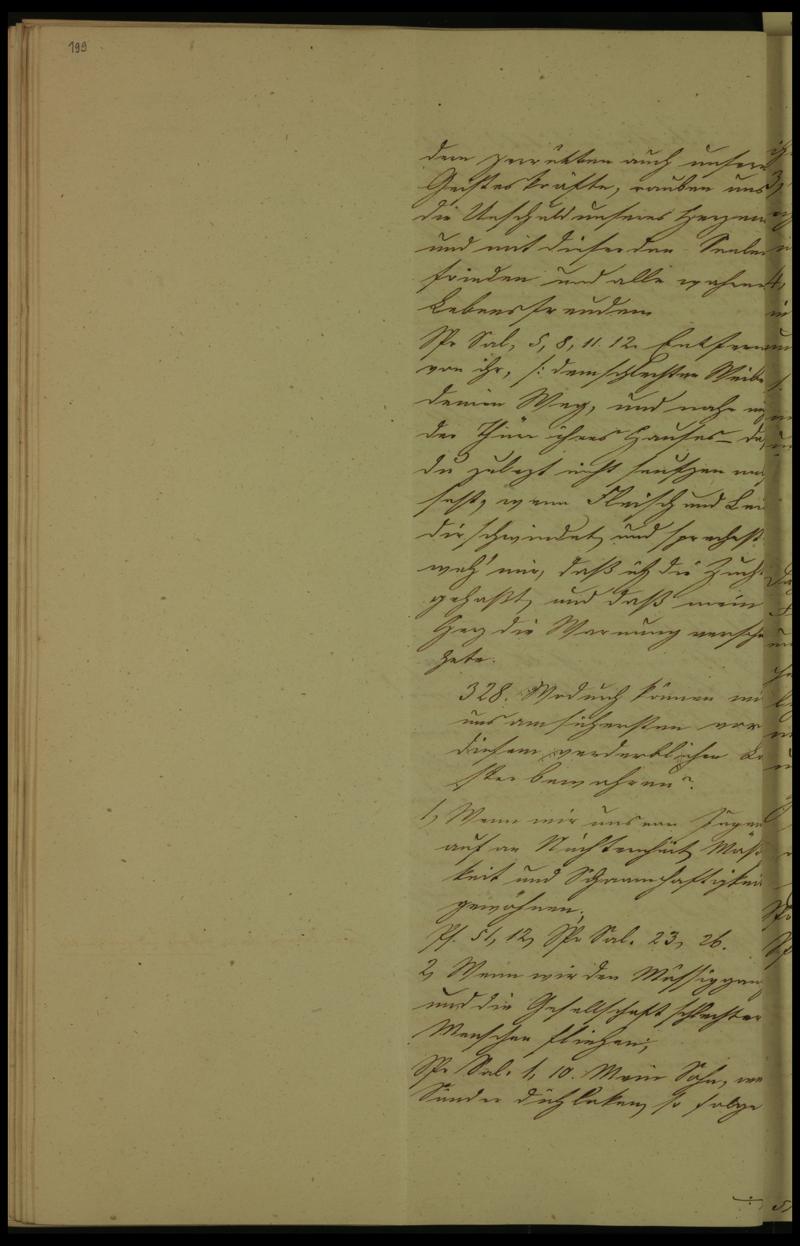 199
dern zerrütten auch unsere
Geisteskräfte, rauben uns
die Unschuld unseres Herzens
und mit dieser den Seelen
frieden und alle wahren
Lebensfreuden.
Spr Sal, 5, 8, 11. 12. Entferne
von ihr, /: dem schlechten Weibe
deinen Weg, und nahe
der Thür ihres Hauses –
du zuletzt nicht seufzen
sest, wenn Fleisch und
dir schwindet, und sprechest
weh' mir, daß ich die Zucht
gehaßt, und daß mein
Herz die Warnung
hete.
328. Wodurch können wir
uns am sichersten vor
diesem verderblichen La
ster bewahren?
1, Wenn wir uns von Jugend
auf an Nüchternheit, Mäßig
keit und Schaamhaftigkeit
gewöhnen;
Ps. 51, 12, Spr Sal. 23, 26.
2, Wenn wir den Müssiggang
und die Gesellschaft schlechter
Menschen fliehen;
Spr Sal. 1, 10. Mein Sohn, wenn
Sünder dich locken, so folge